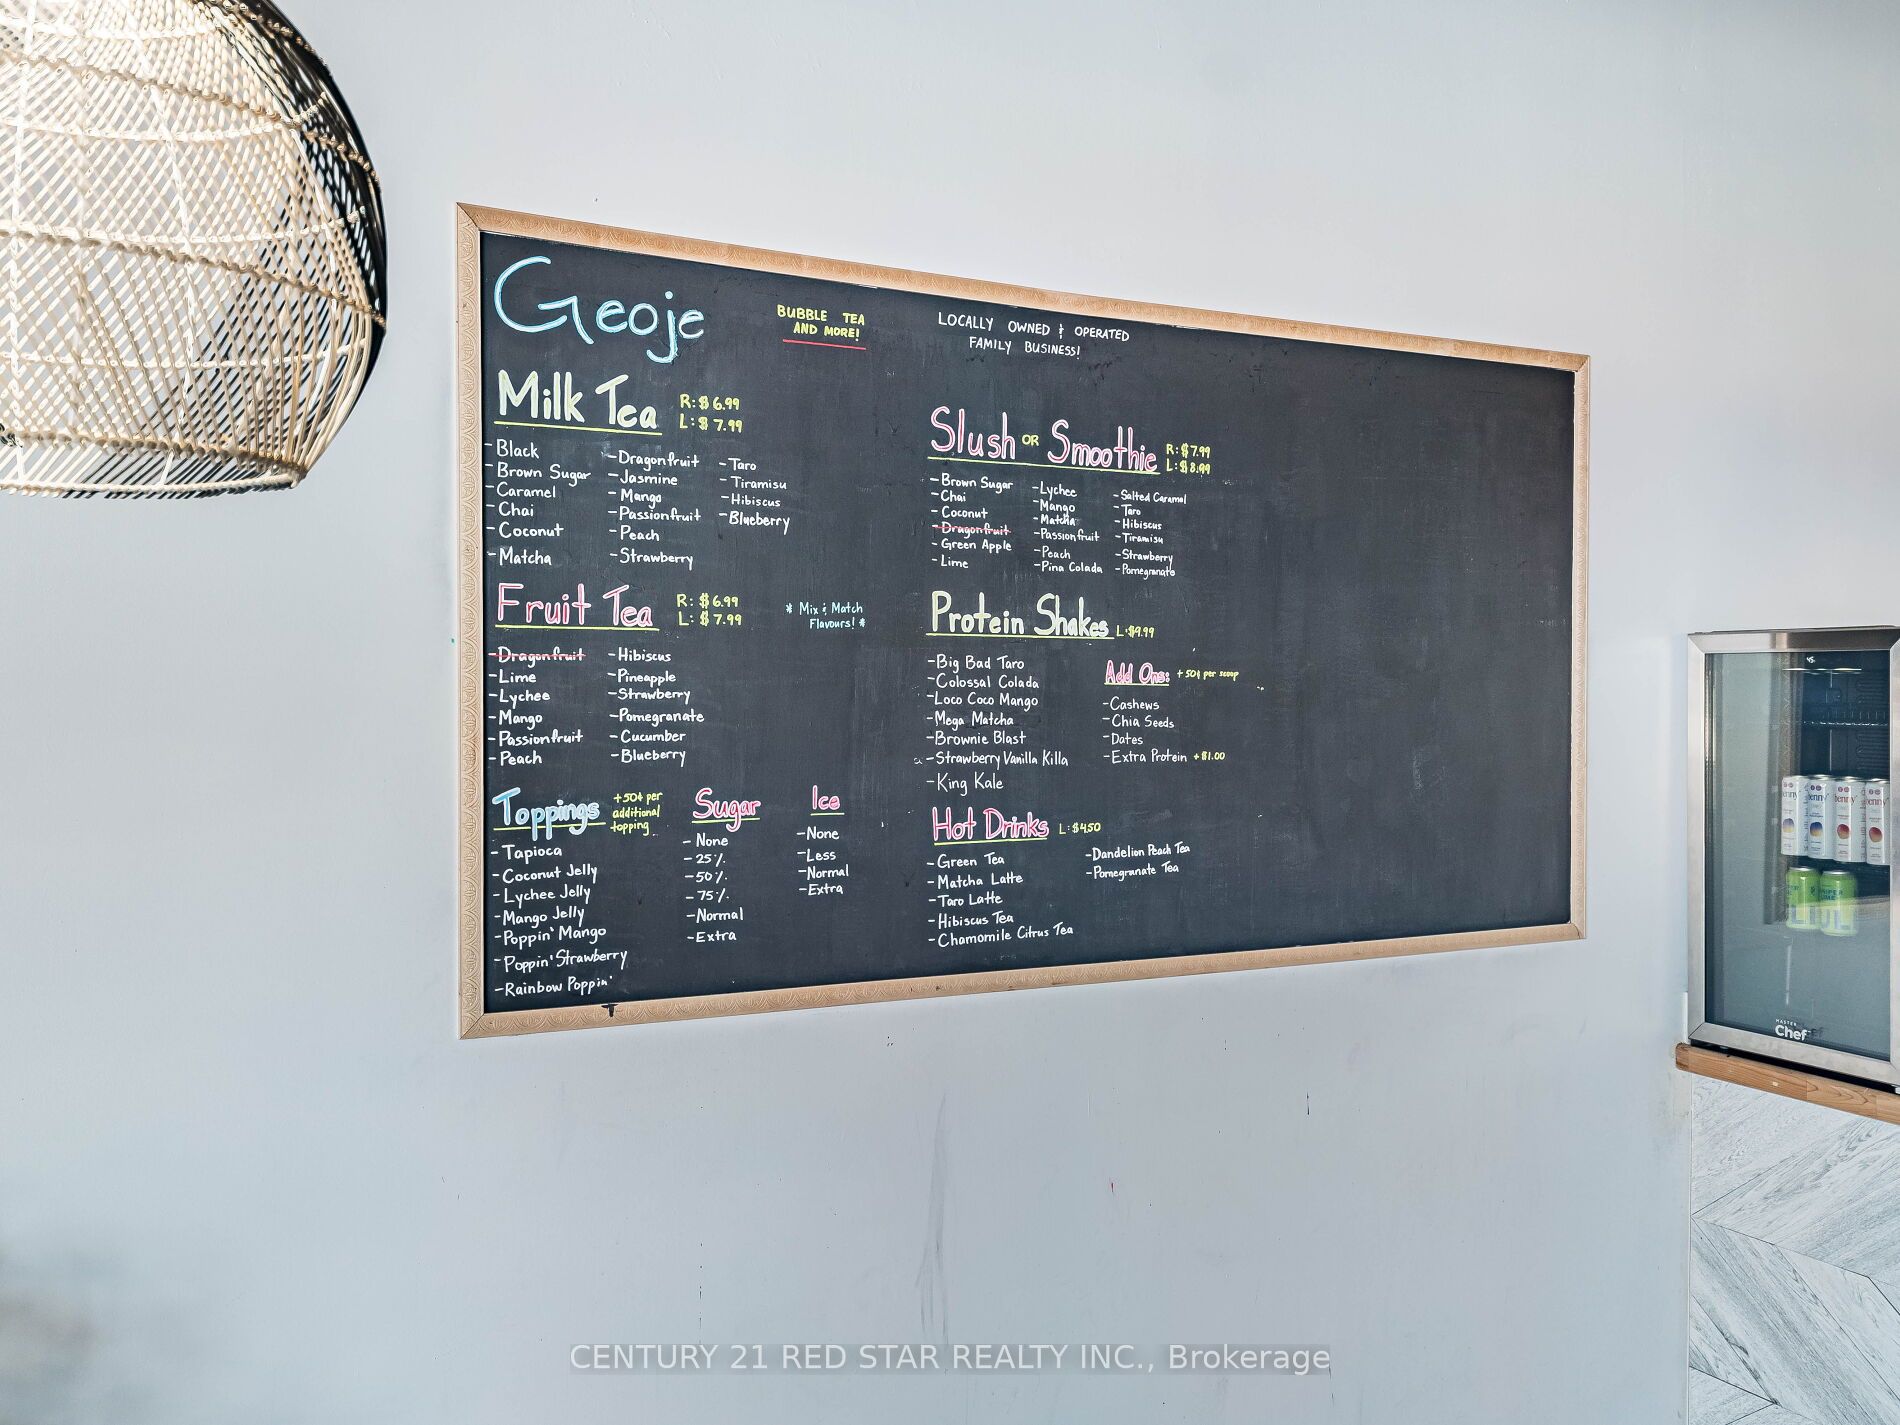 Geoje
BUBBLE TEA
AND MORE!
LOCALLY OWNED & OPERATED
FAMILY BUSINESS!
Milk Tea
R: $6.99
L: $7.99
-Black
-Brown Sugar
-Caramel
-Chai
-Coconut
-Matcha
-Dragonfruit
-Jasmine
-Mango
-Passionfruit
-Peach
-Strawberry
-Taro
-Tiramisu
-Hibiscus
-Blueberry
Fruit Tea
R: $6.99
L: $7.99
* Mix & Match
Flavours! *
-Dragonfruit
-Lime
-Lychee
-Mango
-Passionfruit
-Peach
-Hibiscus
-Pineapple
-Strawberry
-Pomegranate
-Cucumber
-Blueberry
Toppings
+50¢ per
additional
topping
-Tapioca
-Coconut Jelly
-Lychee Jelly
-Mango Jelly
-Poppin' Mango
-Poppin' Strawberry
-Rainbow Poppin'
Sugar
-None
-25%
-50%
-75%
-Normal
-Extra
Ice
-None
-Less
-Normal
-Extra
Slush OR Smoothie
R: $7.99
L: $8.99
-Brown Sugar
-Chai
-Coconut
-Dragonfruit
-Green Apple
-Lime
-Lychee
-Mango
-Matcha
-Passionfruit
-Peach
-Pina Colada
-Salted Caramel
-Taro
-Hibiscus
-Tiramisu
-Strawberry
-Pomegranate
Protein Shakes L: $9.99
-Big Bad Taro
-Colossal Colada
-Loco Coco Mango
-Mega Matcha
-Brownie Blast
-Strawberry Vanilla Killa
-King Kale
Add Ons: +50¢ per scoop
-Cashews
-Chia Seeds
-Dates
-Extra Protein +$1.00
Hot Drinks L: $4.50
-Green Tea
-Matcha Latte
-Taro Latte
-Hibiscus Tea
-Chamomile Citrus Tea
-Dandelion Peach Tea
-Pomegranate Tea
MASTER
Chef
CENTURY 21 RED STAR REALTY INC., Brokerage